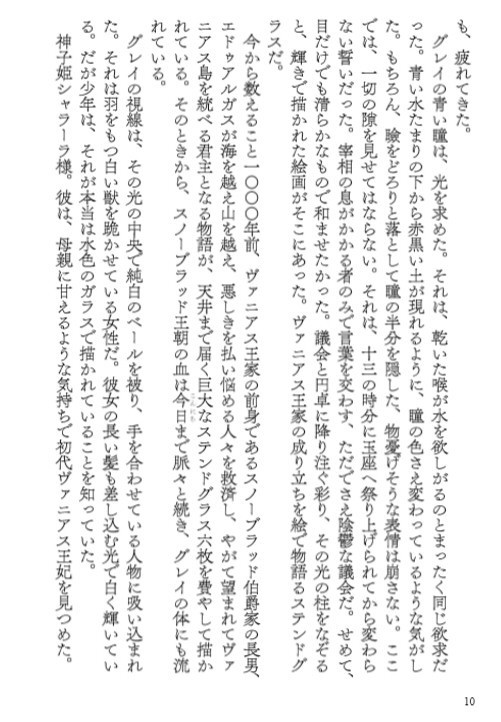 も、疲れてきた。
　グレイの青い瞳は、光を求めた。それは、乾いた喉が水を欲しがるのとまったく同じ欲求だ
った。青い水たまりの下から赤黒い土が現れるように、瞳の色さえ変わっているような気がし
た。もちろん、瞼をどろりと落として瞳の半分を隠した、物憂げそうな表情は崩さない。ここ
では、一切の隙を見せてはならない。それは、十三の時分に玉座へ祭り上げられてから変わら
ない誓いだった。宰相の息がかかる者のみで言葉を交わす、ただでさえ陰鬱な議会だ。せめて、
目だけでも清らかなもので和ませたかった。議会と円卓に降り注ぐ彩り、その光の柱をなぞる
と、輝きで描かれた絵画がそこにあった。ヴァニアス王家の成り立ちを絵で物語るステンドグ
ラスだ。
　今から数えること一〇〇〇年前、ヴァニアス王家の前身であるスノーブラッド伯爵家の長男、
エドゥアルガスが海を越え山を越え、悪しきを払い悩める人々を救済し、やがて望まれてヴァ
ニアス島を統べる君主となる物語が、天井まで届く巨大なステンドグラス六枚を費やして描か
れている。そのときから、スノーブラッド王朝の血は今日まで脈々と続き、グレイの体にも流
れている。
　グレイの視線は、その光の中央で純白のベールを被り、手を合わせている人物に吸い込まれ
た。それは羽をもつ白い獣を跪かせている女性だ。彼女の長い髪も差し込む光で白く輝いてい
る。だが少年は、それが本当は水色のガラスで描かれていることを知っていた。
　神子姫シャラーラ様。彼は、母親に甘えるような気持ちで初代ヴァニアス王妃を見つめた。
10